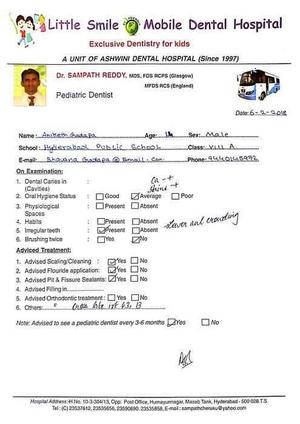 Little Smile Mobile Dental Hospital
Exclusive Dentistry for kids
A UNIT OF ASHWINI DENTAL HOSPITAL (Since 1997)
Dr. SAMPATH REDDY, MDS, FDS RCPS (Glasgow)
MFDS RCS (England)
Pediatric Dentist
Date: 6-2-2018
Name: Aniketh Gadapa Age: 14 Sex: Male
School: Hyderabad Public School Class: VIII A
E-mail: Bhavana Gadapa @ Gmail.Com Phone:
On Examination:
1. Dental Caries in (Cavities)
Ca - +
Stains - +
2. Oral Hygiene Status Good Average Poor
3. Physiological Spaces Present Absent
4. Habits Present Absent
5. Irregular teeth Present Absent Lower ant crowding
6. Brushing twice Yes No
Adviced Treatment:
1. Advised Scaling/Cleaning : Yes No
2. Advised Flouride application: Yes No
3. Advised Pit & Fissure Sealants: Yes No
4. Advised Filling in
5. Advised Orthodontic treatment : Yes No
6. Others:
Note: Advised to see a pediatric dentist every 3-6 months Yes No
Hospital Address: H.No. 10-3-304/13, Opp. Post Office, Humayunnagar, Masab Tank, Hyderabad - 500 028.T.S.
Tel: (C) 23537612, 23535656, 23590690, 23535858, E-mail : sampathcheruku@yahoo.com